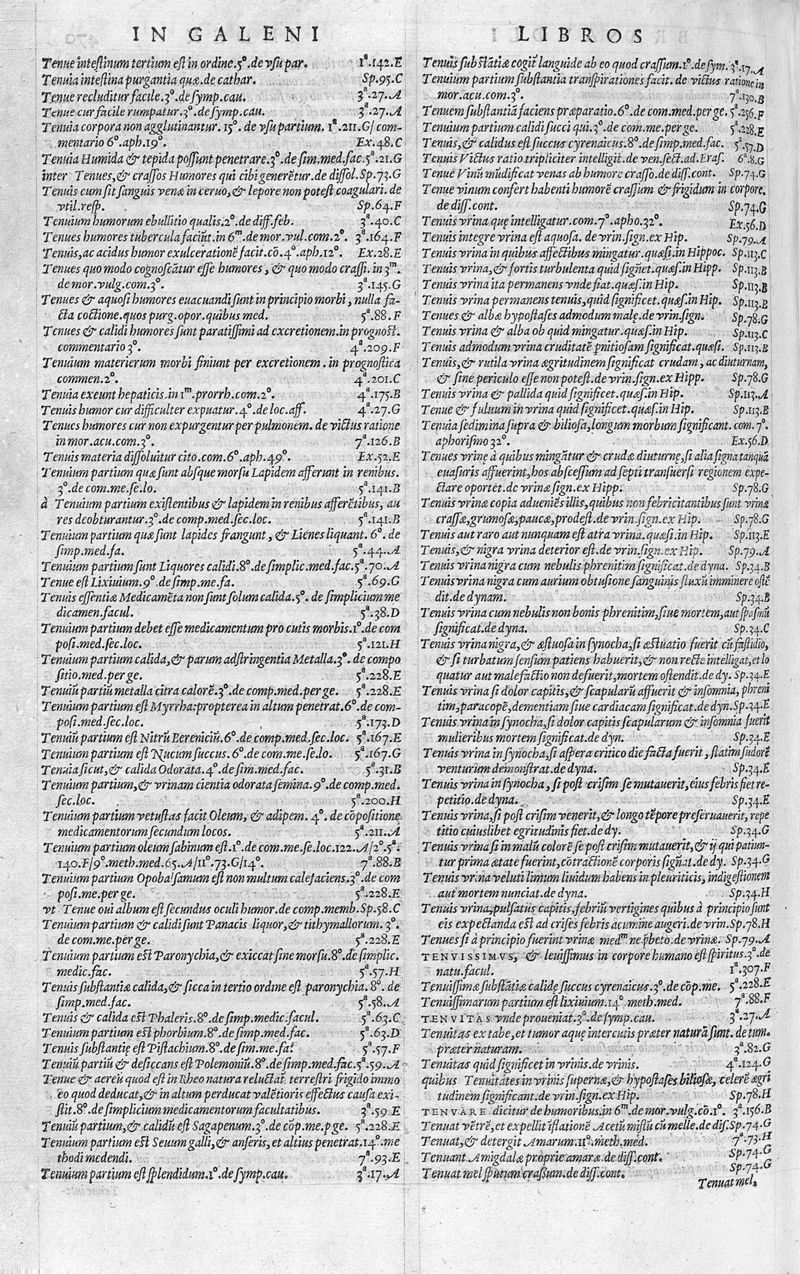 IN GALENI
Tenue intestinum tertium est in ordine.5º.de vsu par. 1ª.142.E
Tenuia intestina purgantia quæ.de cathar. Sp.95.C
Tenue recluditur facile.3º.de symp.cau. 3ª.27.A
Tenue cur facile rumpatur.3º.de symp.cau. 3ª.27.A
Tenuia corpora non agglutinantur. 15º. de vsu partium. 1ª.211.G/ com-
mentario 6º.aph.19º. Ex.48.C
Tenuia Humida & tepida possunt penetrare.3º.de sim.med.fac.5ª.21.G
inter Tenues,& crassos Humores qui cibi generētur.de dissol.Sp.73.G
Tenuis cum sit sanguis venæ in ceruo,& lepore non potest coagulari. de
vtil.resp. Sp.64.F
Tenuium humorum ebullitio qualis.2º.de diff.feb. 3ª.40.C
Tenues humores tubercula faciūt.in 6ᵐ.de mor.vul.com.2º. 3ª.164.F
Tenuis,ac acidus humor exulcerationē facit.cō.4º.aph.12º. Ex.28.E
Tenues quo modo cognoscātur esse humores, & quo modo crassi. in 3ᵐ.
de mor.vulg.com.3º. 3ª.145.G
Tenues & aquosi humores euacuandi sunt in principio morbi, nulla fa-
cta coctione.quos purg.opor.quibus med. 5ª.88.F
Tenues & calidi humores sunt paratissimi ad excretionem.in prognost.
commentario 3º. 4ª.209.F
Tenuium matericrum morbi finiunt per excretionem . in prognostica
commen.2º. 4ª.201.C
Tenuia exeunt hepaticis.in 1ᵐ.prorrh.com.2º. 4ª.175.B
Tenuis humor cur difficulter expuatur.4º.de loc.aff. 4ª.27.G
Tenues humores cur non expurgentur per pulmonem. de victus ratione
in mor.acu.com.3º. 7ª.126.B
Tenuis materia dissoluitur cito.com.6º.aph.49º. Ex.52.E
Tenuium partium quæ sunt absque morsu Lapidem afferunt in renibus.
3º.de com.me.se.lo. 5ª.141.B
à Tenuium partium existentibus & lapidem in renibus afferētibus, au
res deobturantur.3º.de comp.med.sec.loc. 5ª.141.B
Tenuium partium quæ sunt lapides frangunt , & Lienes liquant. 6º. de
simp.med.fa. 5ª.44.A
Tenuium partium sunt Liquores calidi.8º.de simplic.med.fac.5ª.70.A
Tenue est Lixiuium.9º.de simp.me.fa. 5ª.69.G
Tenuis essentiæ Medicamēta non sunt solum calida.5º. de simplicium me
dicamen.facul. 5ª.38.D
Tenuium partium debet esse medicamentum pro cutis morbis.1º.de com
posi.med.sec.loc. 5ª.121.H
Tenuium partium calida,& parum adstringentia Metalla.3º. de compo
sitio.med.per ge. 5ª.228.E
Tenuiū partiū metalla citra calorē.3º.de comp.med.per ge. 5ª.228.E
Tenuium partium est Myrrha:propterea in altum penetrat.6º.de com-
posi.med.sec.loc. 5ª.173.D
Tenuiū partium est Nitrū Ereniciū.6º.de comp.med.sec.loc. 5ª.167.E
Tenuium partium est Nucum succus. 6º.de com.me.se.lo. 5ª.167.G
Tenuia sicut,& calida Odorata.4º.de sim.med.fac. 5ª.31.B
Tenuium partium,& vrinam cientia odorata semina.9º.de comp.med.
sec.loc. 5ª.200.H
Tenuium partium vetustas facit Oleum, & adipem. 4º. de cōpositione
medicamentorum secundum locos. 5ª.211.A
Tenuium partium oleum sabinum est.1º.de com.me.se.loc.122.A/2º.5ª.
140.F/9º.meth.med.65.A/11º.73.G/14º. 7ª.88.B
Tenuium partium Opobalsamum est non multum calefaciens.3º.de com
posi.me.per ge. 5ª.228.E
vt Tenue oui album est secundus oculi humor.de comp.memb.Sp.58.C
Tenuium partium & calidi sunt Panacis liquor,& tithymallorum. 3º.
de com.me.per ge. 5ª.228.E
Tenuium partium est Paronychia, & exiccat sine morsu.8º.de simplic.
medic.fac. 5ª.57.H
Tenuis substantiæ calida,& sicca in tertio ordine est paronychia. 8º. de
simp.med.fac. 5ª.58.A
Tenuis & calida est Phaleris.8º.de simp.medic.facul. 5ª.63.C
Tenuium partium est phorbium.8º.de simp.med.fac. 5ª.63.D
Tenuis substantię est Pistachium.8º.de sim.me.fa. 5ª.57.F
Tenuiū partiū & desiccans est Polemoniū.8º.de simp.med.fac.5ª.59.A
Tenue & aereū quod est in Rheo natura reluctat terrestri frigido immo
eo quod deducat,& in altum perducat valētioris effectus causa exi-
stit.8º.de simplicium medicamentorum facultatibus. 3ª.59.E
Tenuiū partium,& calidū est Sagapenum.3º.de cōp.me.p ge. 5ª.228.E
Tenuium partium est Seuum galli,& anseris,et altius penetrat.14º.me
thodi medendi. 7ª.93.E
Tenuium partium est splendidum.1º.de symp.cau. 3ª.17.A
LIBROS
Tenuis substātiæ cogit languide ab eo quod crassum.1º.de sym. 3ª.17.A
Tenuium partium substantia transpirationes facit. de victus ratione in
mor.acu.com.3º. 7ª.130.B
Tenuem substantiā faciens præparatio.6º.de com.med.per ge. 5ª.256.F
Tenuium partium calidi succi qui.3º.de com.me.per ge. 5ª.228.E
Tenuis,& calidus est succus cyrenaicus.8º.de simp.med.fac. 5ª.57.D
Tenuis Victus ratio tripliciter intelligit.de ven.sect.ad.Eras. 6ª.8.G
Tenue Vinū mūdificat venas ab humore crasso.de diss.cont. Sp.74.G
Tenue vinum confert habenti humorē crassum & frigidum in corpore.
de diss.cont. Sp.74.G
Tenuis vrina quę intelligatur.com.7º.apho.32º. Ex.56.D
Tenuis integre vrina est aquosa. de vrin.sign.ex Hip. Sp.79.A
Tenuis vrina in quibus affectibus mingatur.quæs.in Hippoc. Sp.113.C
Tenuis vrina,& fortis turbulenta quid signet.quæs.in Hipp. Sp.113.B
Tenuis vrina ita permanens vnde fiat.quæs.in Hip. Sp.113.B
Tenuis vrina permanens tenuis,quid significet.quæs.in Hip. Sp.113.B
Tenues & albæ hypostases admodum malę.de vrin.sign. Sp.78.G
Tenuis vrina & alba ob quid mingatur.quæs.in Hip. Sp.113.C
Tenuis admodum vrina cruditatē pnitiosam significat.quæsi. Sp.113.B
Tenuis,& rutila vrina ægritudinem significat crudam, ac diuturnam,
& sine periculo esse non potest.de vrin.sign.ex Hipp. Sp.78.G
Tenuis vrina & pallida quid significet.quæs.in Hip. Sp.113.A
Tenue & fuluum in vrina quid significet.quæs.in Hip. Sp.113.B
Tenuia sedimina supra & biliosa,longum morbum significant. com.7º.
aphorismo 32º. Ex.56.D
Tenues vrinę à quibus mingātur & crudæ diuturnę,si alia signa tanquā
euasuris affuerint,hos abscessum ad septi transuersi regionem expe-
ctare oportet.de vrinæ sign.ex Hipp. Sp.78.G
Tenuis vrinæ copia adueniēs illis,quibus non febricitantibus sunt vrinæ
crassæ,grumosæ,paucæ,prodest.de vrin.sign.ex Hip. Sp.78.G
Tenuis aut raro aut nunquam est atra vrina.quæsi.in Hip. Sp.113.E
Tenuis,& nigra vrina deterior est.de vrin.sign.ex Hip. Sp.79.A
Tenuis vrina nigra cum nebulis phrenitim significat.de dyna. Sp.34.B
Tenuis vrina nigra cum aurium obtusione sanguinis fluxū imminere ostē
dit.de dynam. Sp.34.B
Tenuis vrina cum nebulis non bonis phrenitim,siue mortem,aut spasmū
significat.de dyna. Sp.34.C
Tenuis vrina nigra,& æstuosa in synocha,si æstuatio fuerit cū fastidio,
& si turbatum sensum patiens habuerit,& non recte intelligat,et lo
quatur aut malefactio non defuerit,mortem ostendit.de dy. Sp.34.E
Tenuis vrina si dolor capitis,& scapularū affuerit & insomnia, phreni
tim,paracopē,dementiam siue cardiacam significat.de dyn. Sp.34.E
Tenuis vrina in synocha,si dolor capitis scapularum & insomnia fuerit
mulieribus mortem significat.de dyn. Sp.34.E
Tenuis vrina in synocha,si aspera critico die facta fuerit, statim sudorē
venturium demonstrat.de dyna. Sp.34.E
Tenuis vrina in synocha, si post crisim se mutauerit,eius febris fiet re-
petitio.de dyna. Sp.34.E
Tenuis vrina,si post crisim venerit,& longo tēpore preseruauerit, repe
titio cuiuslibet egritudinis fiet.de dy. Sp.34.G
Tenuis vrina si in malū colorē se post crisim mutauerit,& ij qui patiun-
tur prima ætate fuerint,cōtractionē corporis signat.de dy. Sp.34.G
Tenuis vrina veluti limum liuidum habens in pleuriticis, indigestionem
aut mortem nunciat.de dyna. Sp.34.H
Tenuis vrina,pulsatus capitis,febriū vertigines quibus à principio sunt
eis expectanda est ad crises febris acumine augeri.de vrin.Sp.78.H
Tenues si à principio fuerint vrinæ medᵐ ne p̄beto.de vrinæ. Sp.79.A
TENVISSIMVS, & leuissimus in corpore humano est spiritus.3º.de
natu.facul. 1ª.307.F
Tenuissimæ substātiæ calidę succus cyrenaicus.3º.de cōp.me. 5ª.228.E
Tenuissimarum partium est lixiuium.14º.meth.med. 7ª.88.F
TENVITAS vnde proueniat.3º.de symp.cau. 3ª.27.A
Tenuitas ex tabe,et tumor aquę intercutis præter naturā sunt. de tum.
præter naturam. 3ª.82.G
Tenuitas quid significet in vrinis.de vrinis. 4ª.124.G
quibus Tenuitates in vrinis supernæ,& hypostases biliosæ, celerē ægri
tudinem significant.de vrin.sign.ex Hip. Sp.78.H
TENVARE dicitur de humoribus.in 6ᵐ.de mor.vulg.cō.1º. 3ª.156.B
Tenuat vētrē,et expellit iflationē Acetū mistū cū melle.de dis.Sp.74.G
Tenuat,& detergit Amarum.11º.meth.med. 7ª.73.H
Tenuant Amigdalæ proprie amaræ.de diss.cont. Sp.74.G
Tenuat mel sputum crassum.de diss.cont. Sp.74.G
Tenuat mel,